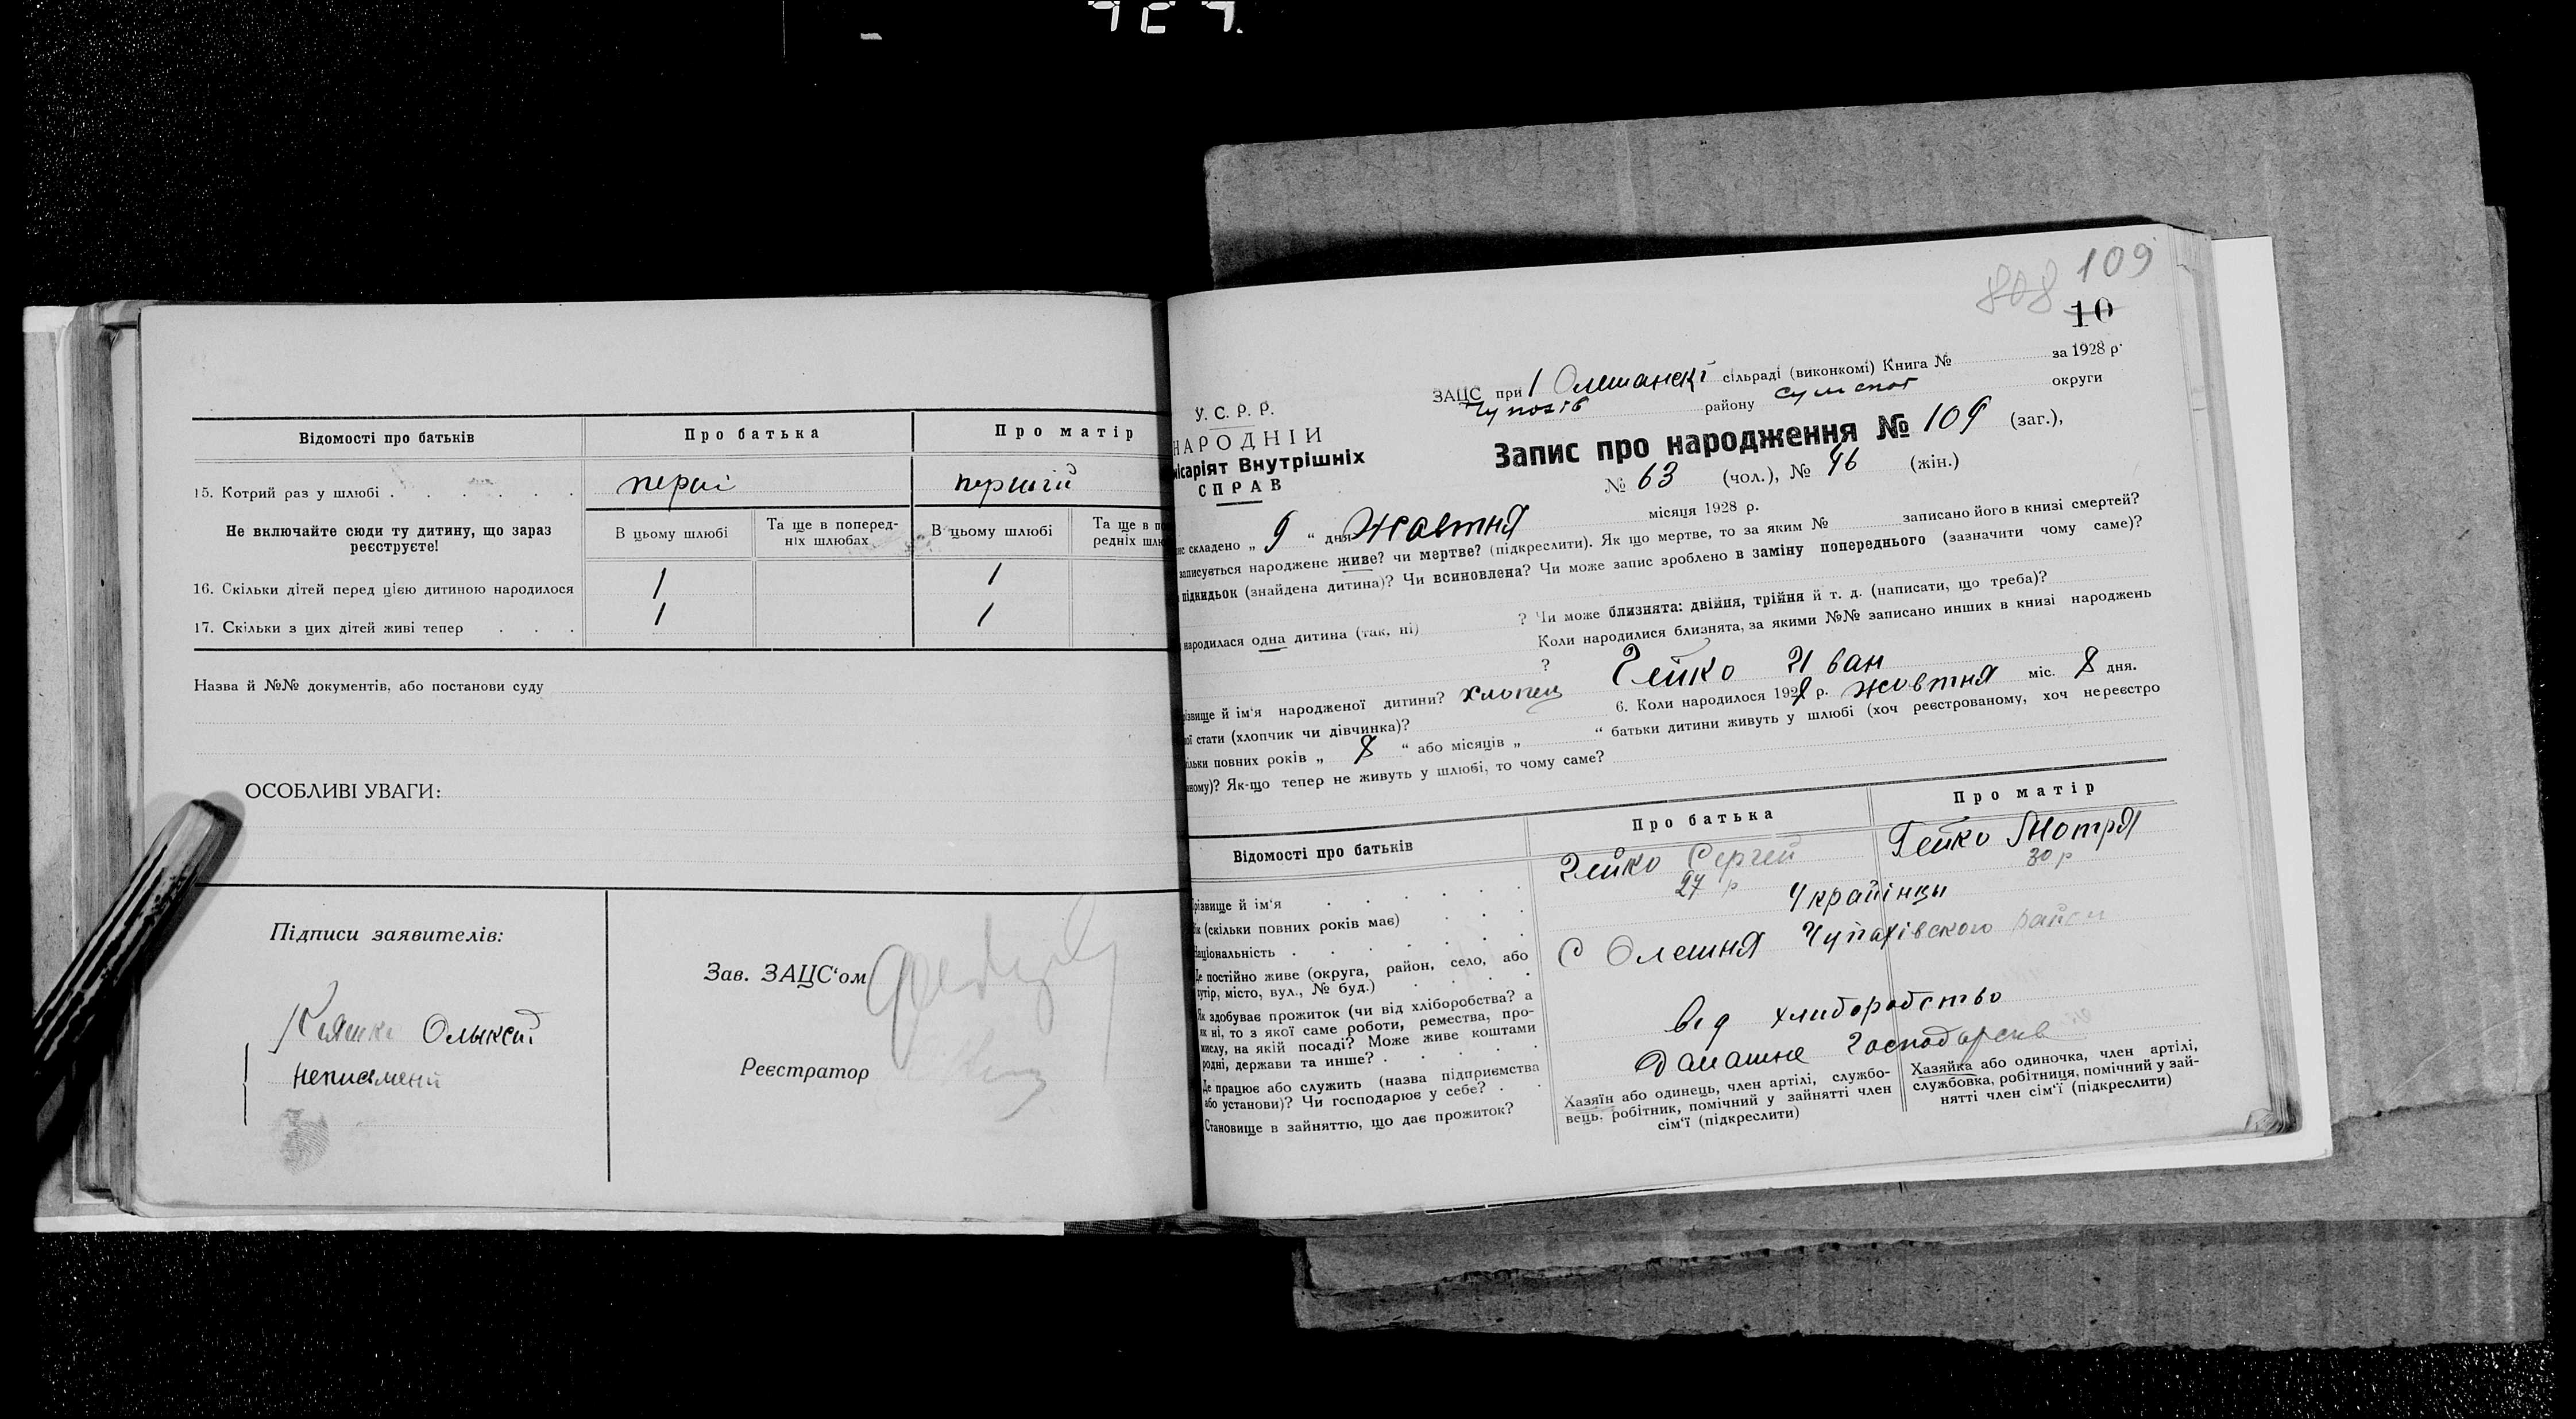 Відомості про батьків
Про батька
Про матір
15. Котрий раз у шлюбі
перші
першій
Не включайте сюди ту дитину, що зараз
реєструєте!
В цьому шлюбі
Та ще в поперед-
ніх шлюбах
В цьому шлюбі
Та ще в по
редніх шлю
16. Скільки дітей перед цією дитиною народилося
1
1
17. Скільки з цих дітей живі тепер
1
1
Назва й №№ документів, або постанови суду
ОСОБЛИВІ УВАГИ:
Підписи заявителів:
Олыксій
неписьмений
Зав. ЗАЦС'ом
Реєстратор
808 109
10
ЗАЦС при 1 Олешанскі сільраді (виконкомі) Книга № за 1928 р.
району Сумской округи
У. С. Р. Р.
НАРОДНІЙ
місаріят Внутрішніх
СПРАВ
Запис про народження № 109 (заг.),
№ 63 (чол.), № 46 (жін.)
ис складено „ 9 “ дня Жовтня місяця 1928 р.
записується народжене живе? чи мертве? (підкреслити). Як що мертве, то за яким № записано його в книзі смертей?
підкидьок (знайдена дитина)? Чи всиновлена? Чи може запис зроблено в заміну попереднього (зазначити чому саме)?
народилася одна дитина (так, ні) ? Чи може близнята: двійня, трійня й т. д. (написати, що треба)?
Коли народилися близнята, за якими №№ записано инших в книзі народжень
?
різвище й ім'я народженої дитини? Гейко Иван
ої стати (хлопчик чи дівчинка)? хлопец 6. Коли народилося 1928 р. жовтня міс. 8 дня.
ільки повних років „ 8 “ або місяців „ “ батьки дитини живуть у шлюбі (хоч реєстрованому, хоч нереєстро
ному)? Як-що тепер не живуть у шлюбі, то чому саме?
Відомості про батьків
Про батька
Про матір
різвище й ім'я
Гейко Сергей
Гейко Мотря
ік (скільки повних років має)
27 р
30 р
аціональність
Українци
Де постійно живе (округа, район, село, або
хутір, місто, вул., № буд.)
С Олешня Чупахівского район
Як здобуває прожиток (чи від хліборобства? а
як ні, то з якої саме роботи, ремества, про-
мислу, на якій посаді? Може живе коштами
родні, держави та инше?
від хлиборобство
Де працює або служить (назва підприємства
або установи)? Чи господарює у себе?
Дамашне Господарсив
Становище в зайняттю, що дає прожиток?
Хазяїн або одинець, член артілі, службо-
вець. робітник, помічний у зайнятті член
сім'ї (підкреслити)
Хазяйка або одиночка, член артілі,
службовка, робітниця, помічний у зай-
нятті член сім'ї (підкреслити)